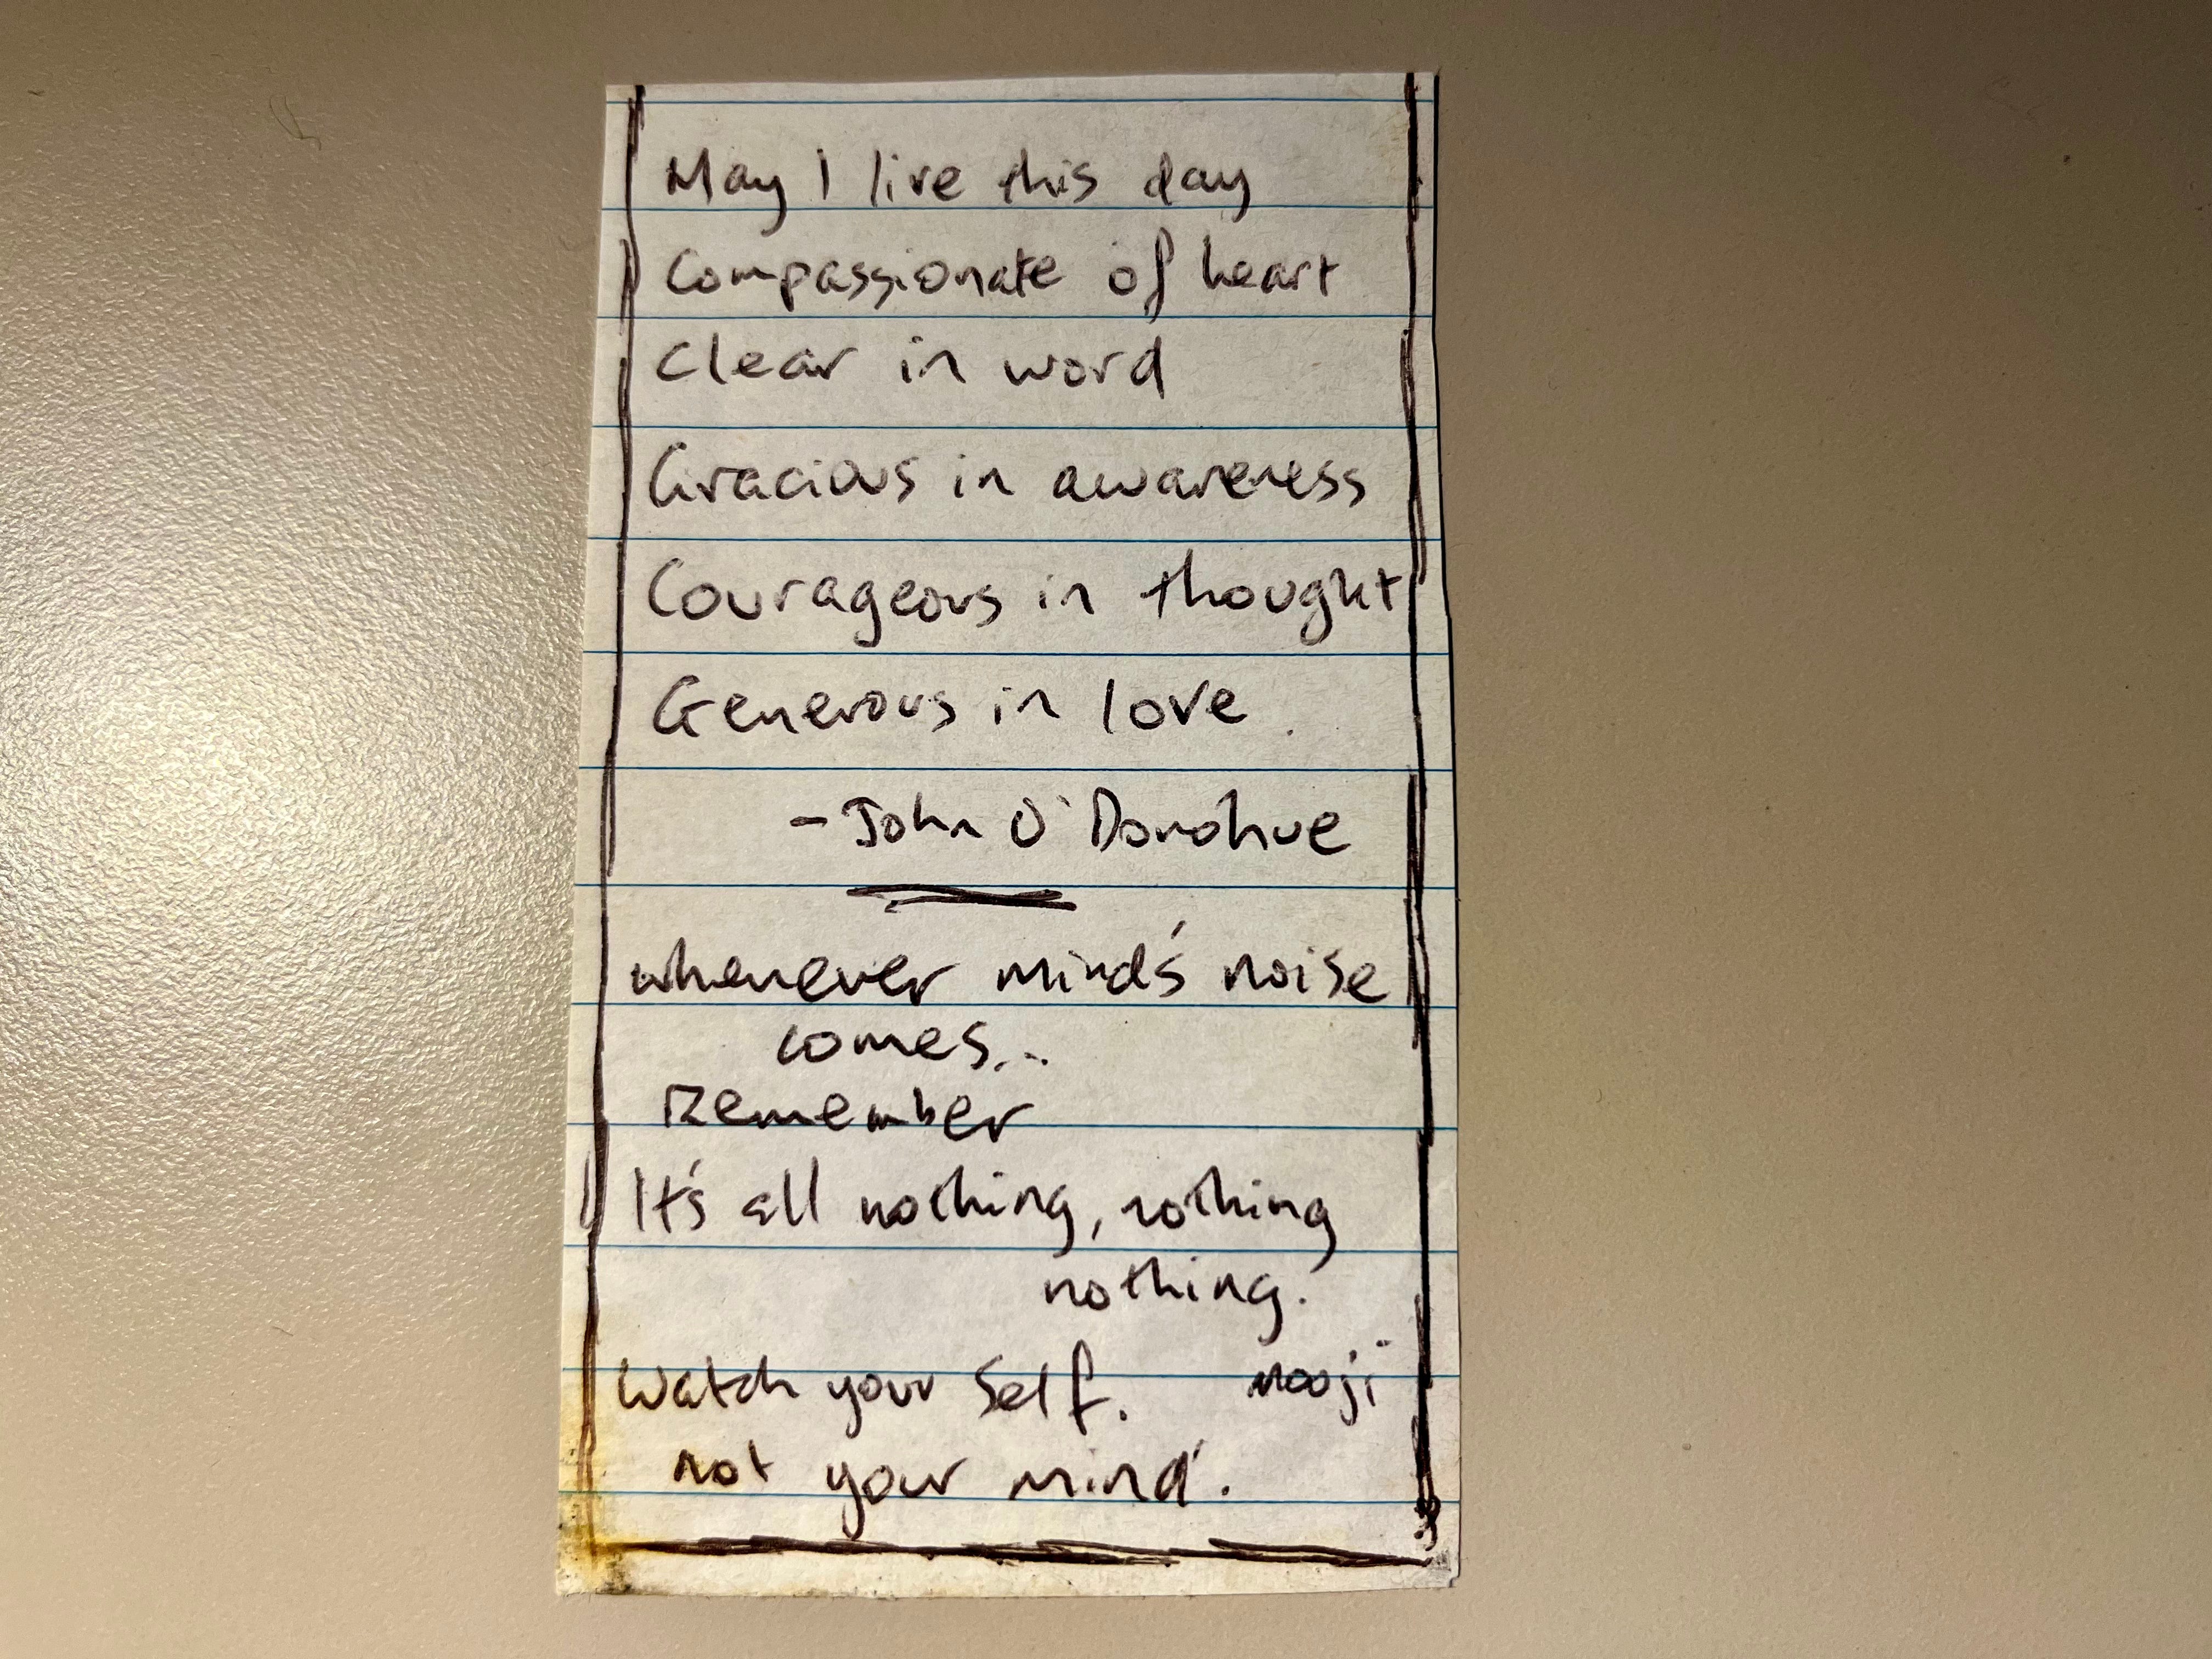 May I live this day
Compassionate of heart
Clear in word
Gracious in awareness
Courageous in thought
Generous in love.
- John O'Donohue
whenever mind's noise
comes...
Remember
It's all nothing, nothing
nothing.
Watch your Self. mooji
not your mind.